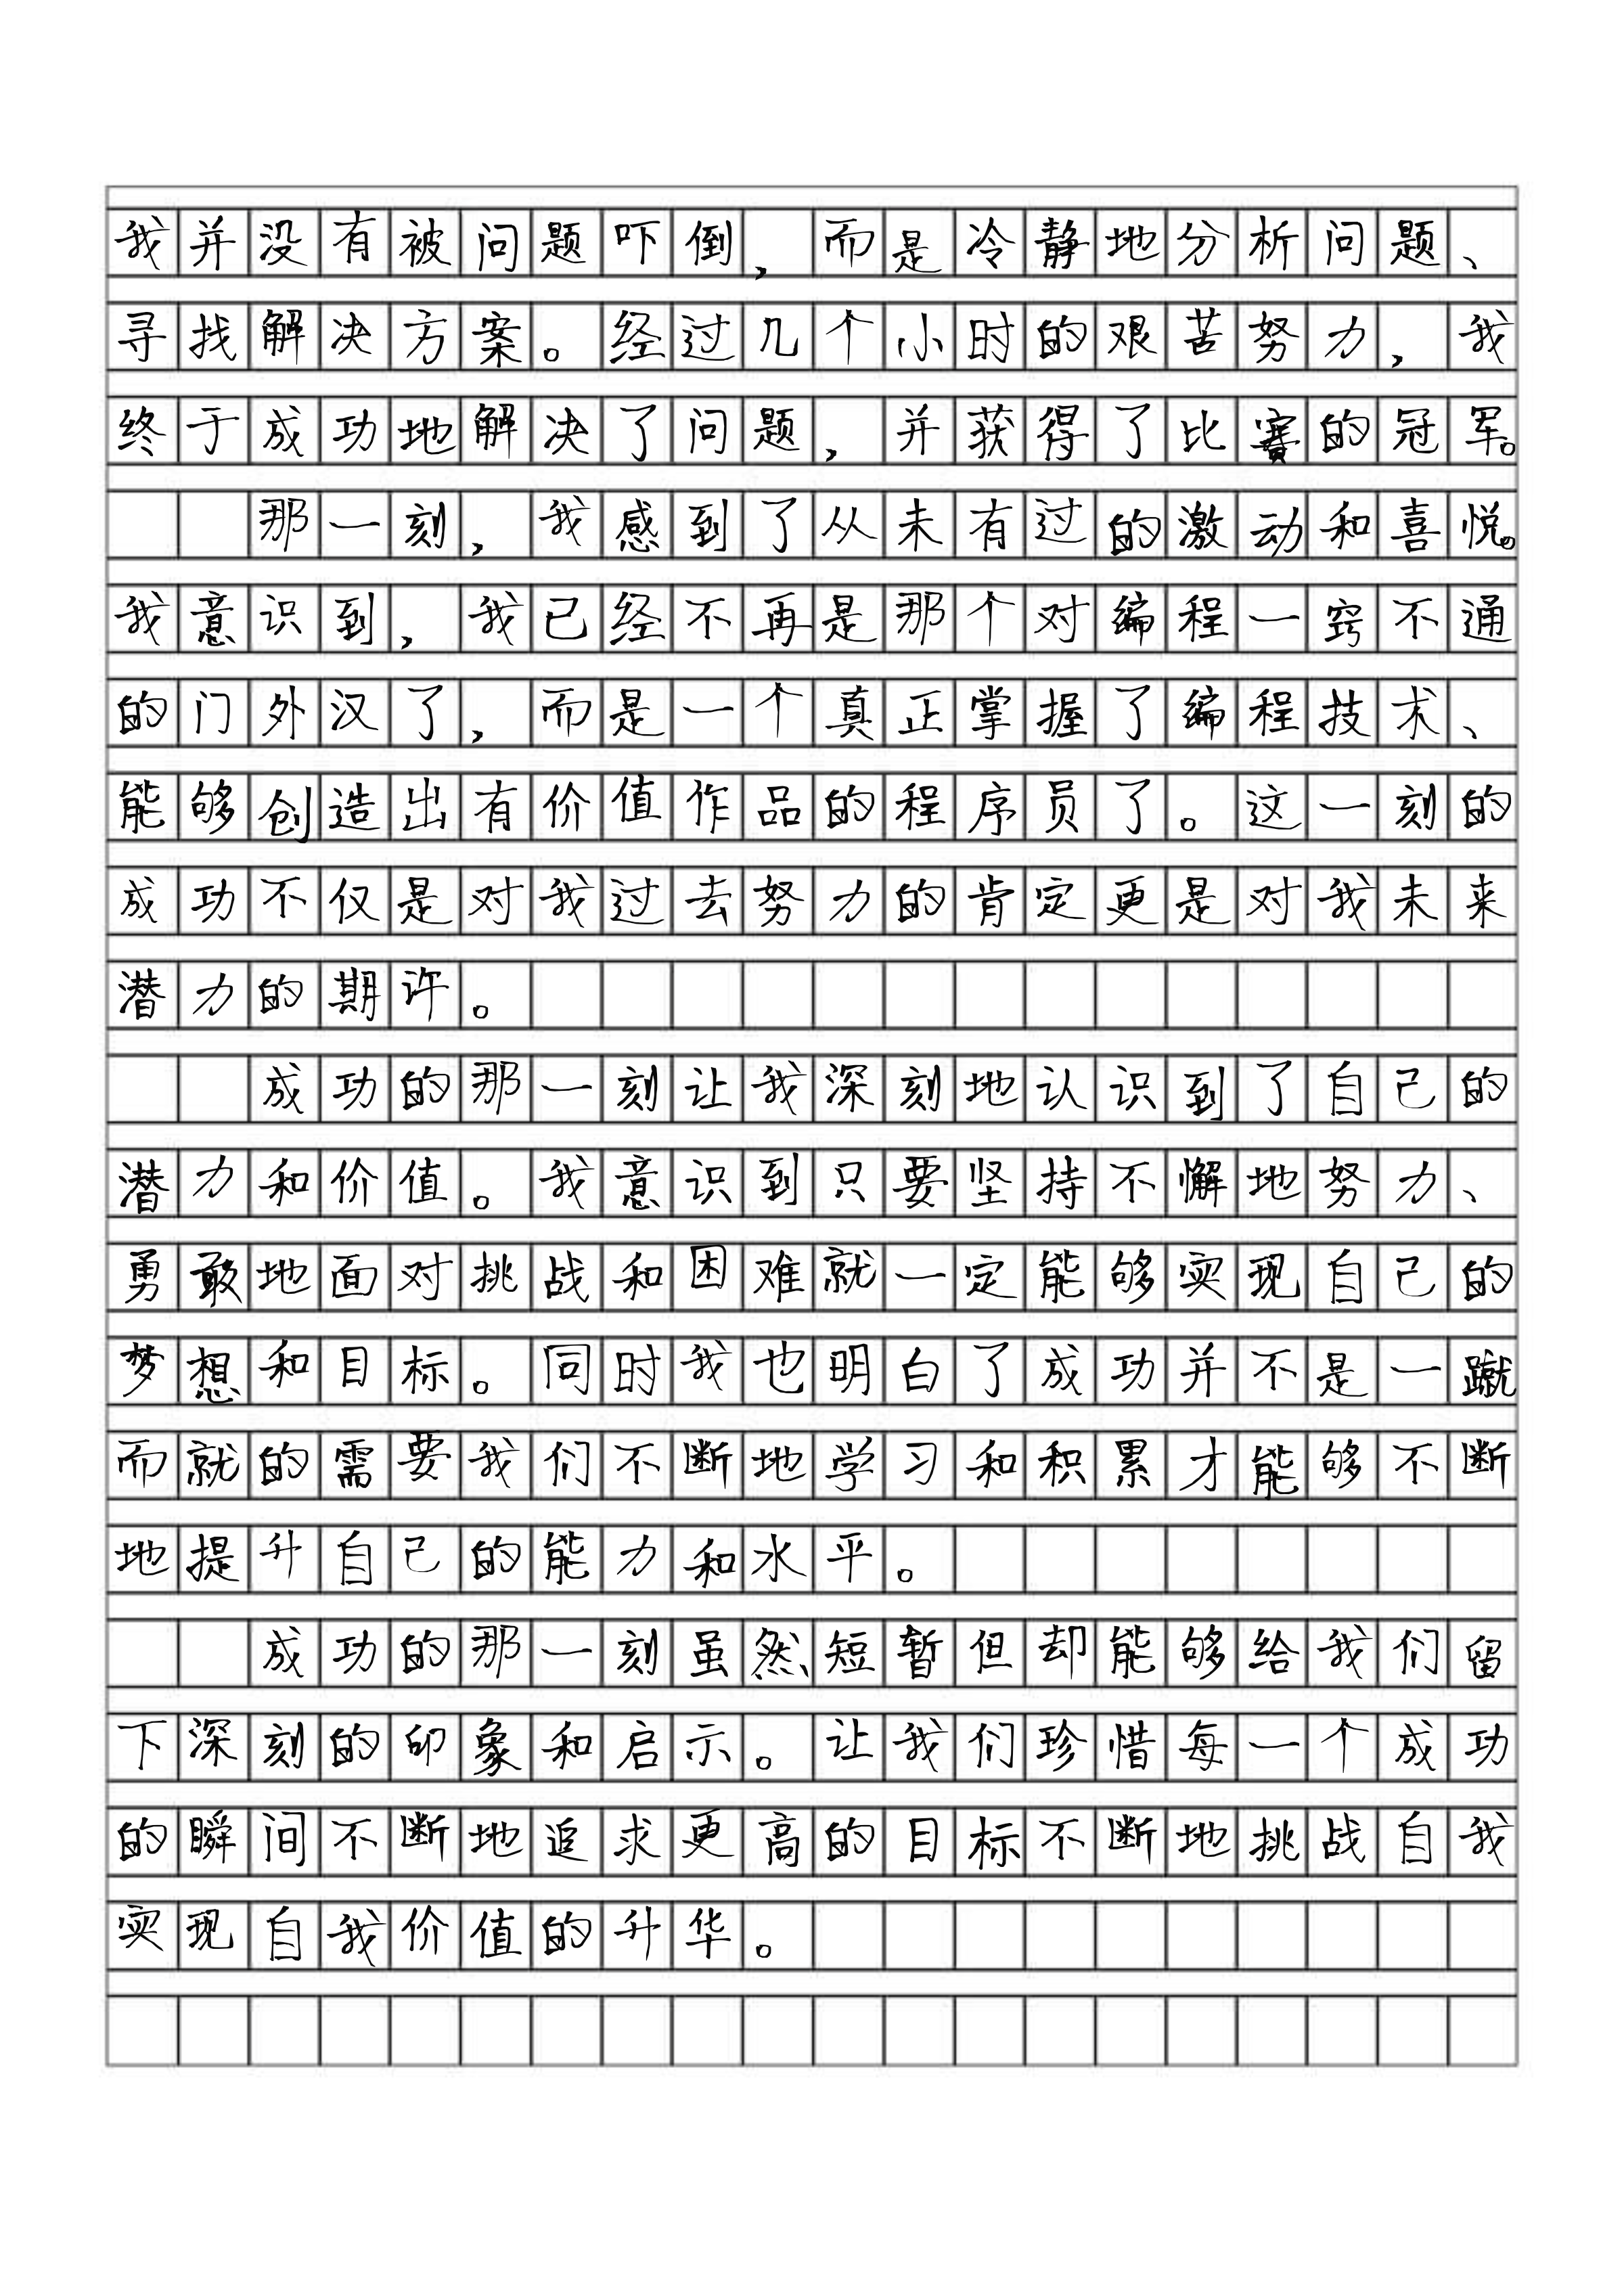 我并没有被问题吓倒，而是冷静地分析问题、
寻找解决方案。经过几个小时的艰苦努力，我
终于成功地解决了问题，并获得了比赛的冠军。
那一刻，我感到了从未有过的激动和喜悦。
我意识到，我已经不再是那个对编程一窍不通
的门外汉了，而是一个真正掌握了编程技术、
能够创造出有价值作品的程序员了。这一刻的
成功不仅是对我过去努力的肯定更是对我未来
潜力的期许。
成功的那一刻让我深刻地认识到了自己的
潜力和价值。我意识到只要坚持不懈地努力、
勇敢地面对挑战和困难就一定能够实现自己的
梦想和目标。同时我也明白了成功并不是一蹴
而就的需要我们不断地学习和积累才能够不断
地提升自己的能力和水平。
成功的那一刻虽然短暂但却能够给我们留
下深刻的印象和启示。让我们珍惜每一个成功
的瞬间不断地追求更高的目标不断地挑战自我
实现自我价值的升华。